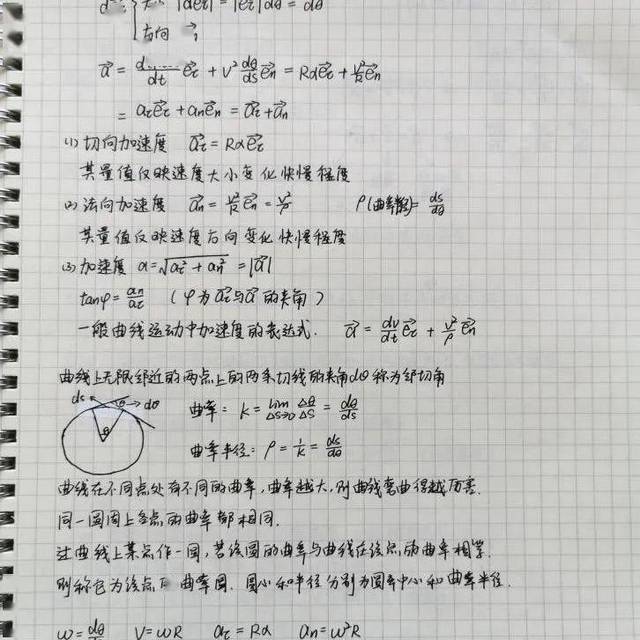 大小 |de⃗τ| = |e⃗τ|dθ = dθ
方向
a⃗ = d/dt e⃗τ + v² dθ/ds e⃗n = Rαe⃗τ + v²/R e⃗n
= aτe⃗τ + ane⃗n = a⃗τ + a⃗n
(1) 切向加速度 a⃗τ = Rαe⃗τ
其量值反映速度大小变化快慢程度
(2) 法向加速度 a⃗n = v²/R e⃗n = v²/ρ ρ(曲率)= ds/dθ
其量值反映速度方向变化快慢程度
(3) 加速度 a = √(aτ² + an²) = |a⃗|
tanφ = an/aτ (φ为a⃗τ与a⃗的夹角)
一般曲线运动中加速度的表达式. a⃗ = dv/dt e⃗τ + v²/ρ e⃗n
曲线上无限邻近的两点上的两条切线的夹角dθ称为邻切角
ds θ dθ
曲率: K = lim Δs→0 Δθ/Δs = dθ/ds
θ
曲率半径: ρ = 1/K = ds/dθ
曲线在不同点处有不同的曲率,曲率越大,则曲线弯曲得越厉害.
同一圆周上各点的曲率都相同.
过曲线上某点作一圆,若该圆的曲率与曲线在该点的曲率相等.
则称它为该点 曲率圆. 圆心和半径分别为曲率中心和曲率半径.
ω = dθ/dt V = ωR aτ = Rα an = ω²R